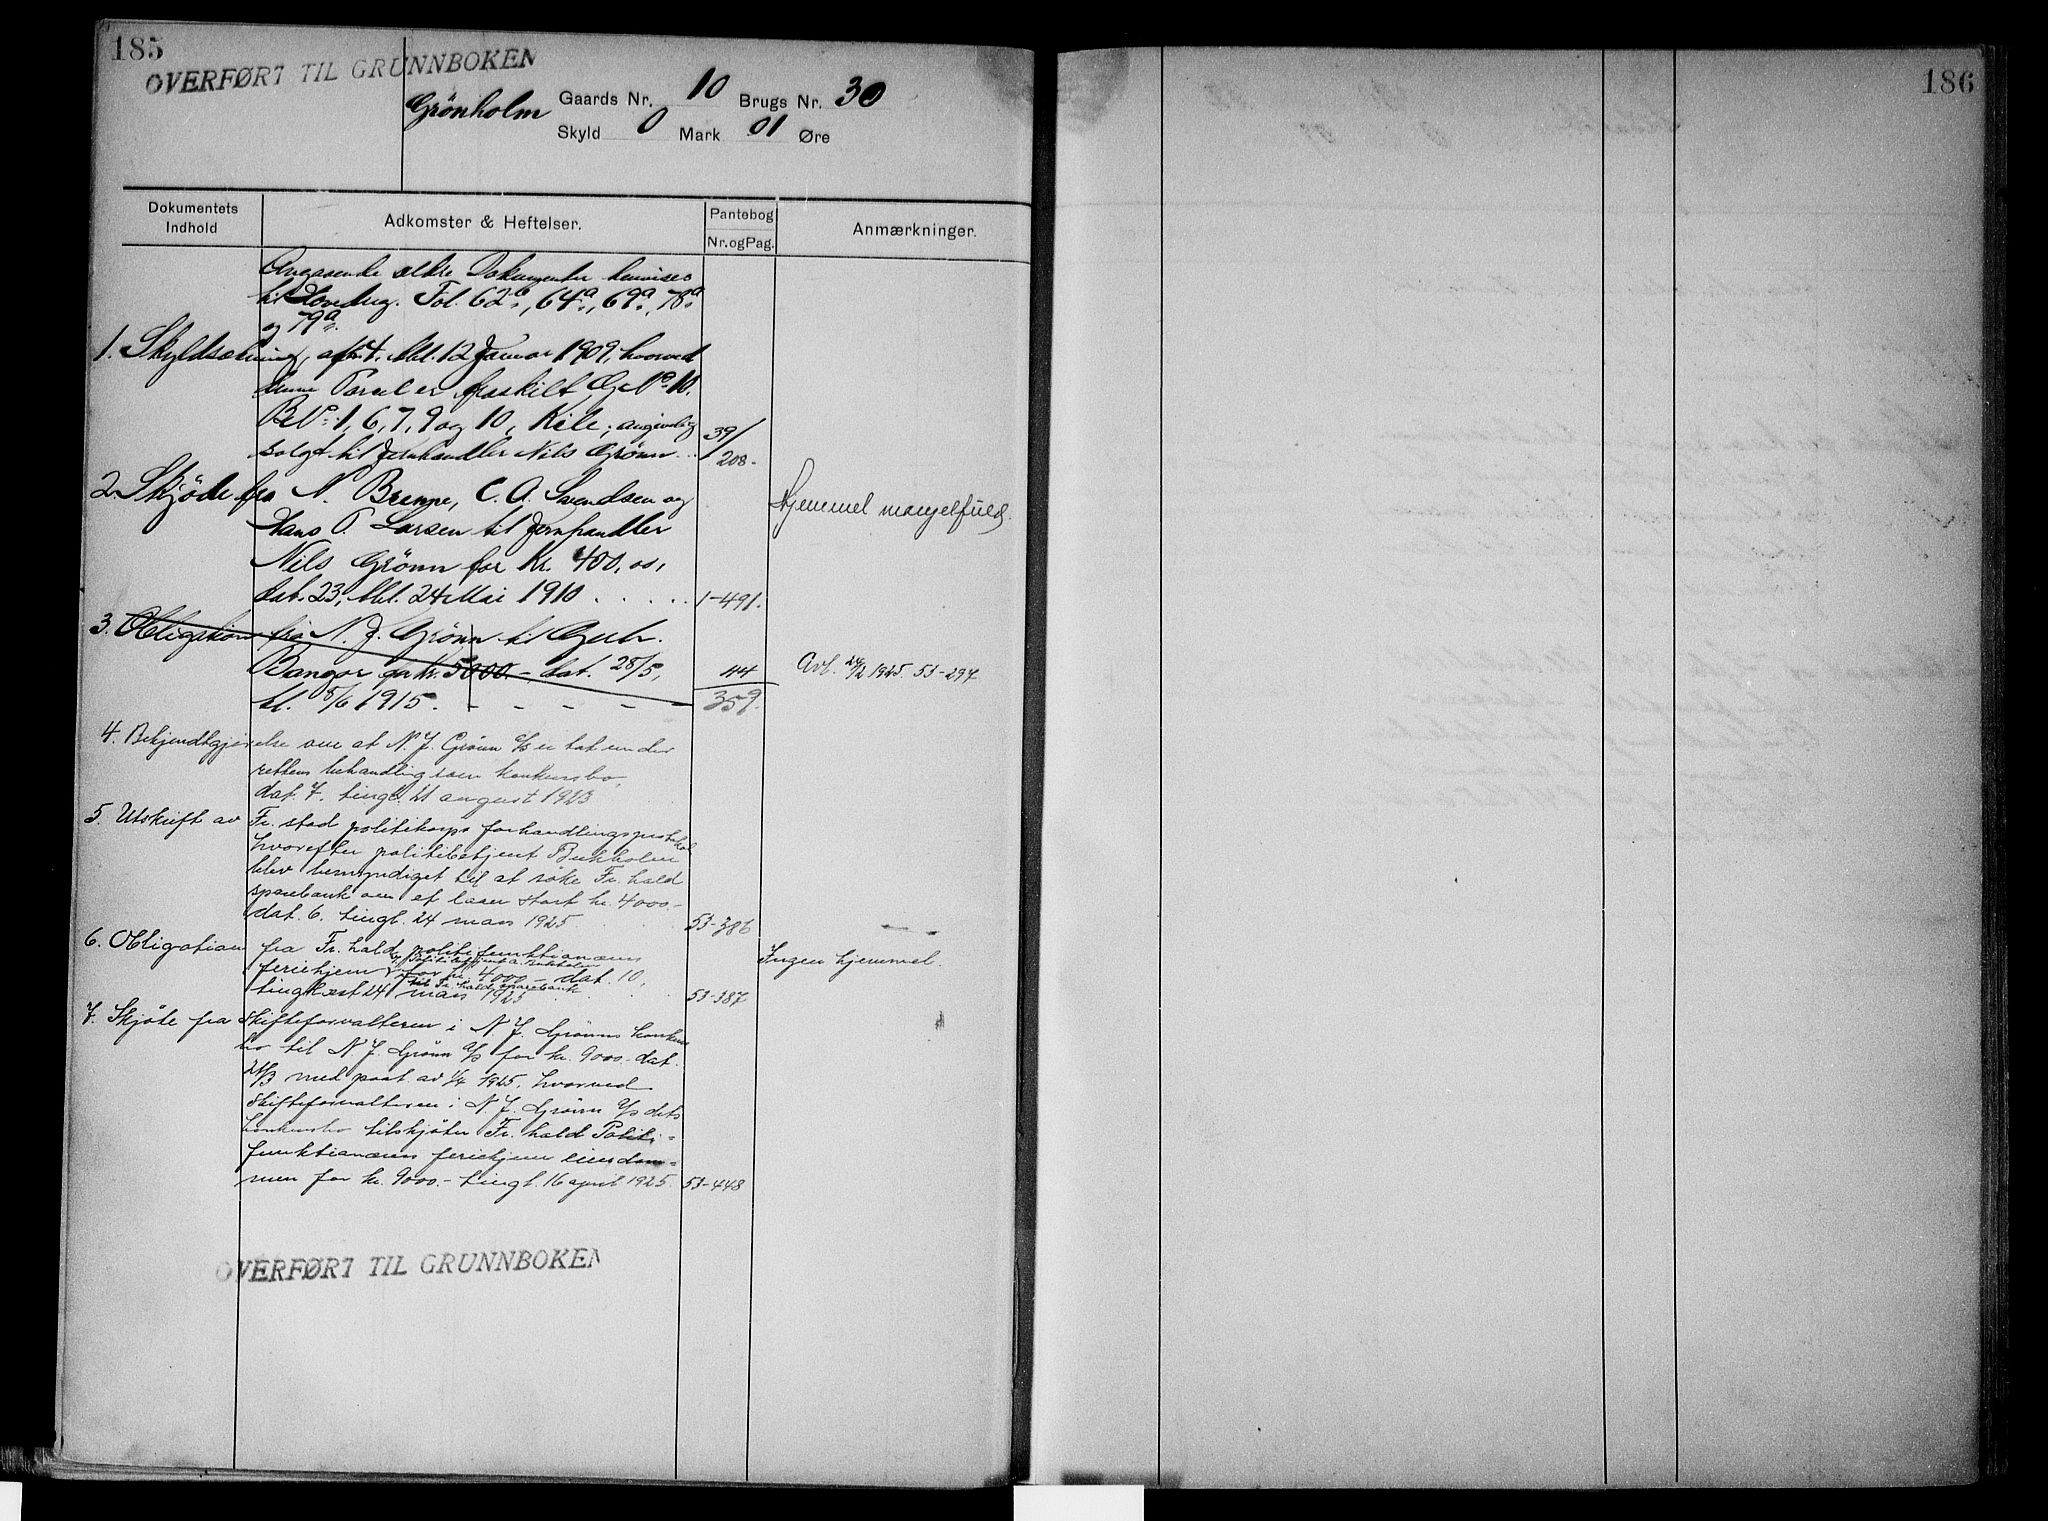 185
OVERFØRT TIL GRUNNBOKEN
Grönholm Gaards Nr. 10 Brugs Nr. 30
Skyld 0 Mark 01 Øre
Dokumentets Indhold
Adkomster & Heftelser.
Pantebog Nr. og Pag.
Anmærkninger.
Angaaende ældre Dokumenter henvises
til Hovedreg. Fol. 62a, 64a, 69a, 78a
og 79a.
1. Skyldsætning, afh. 4. tbl. 12 Januar 1909, hvorved
denne Parcel er fraskilt G. No. 10.
B No. 1, 6, 7, 9 og 10, Kile, angivelig
solgt til Jernhandler Nils Grönn . . 39/208.
2. Skjöde fra N. Brenne, C. A. Svendsen og
Hans P. Larsen til Jernhandler Hjemmel mangelfuld.
Nils Grönn for Kr. 400,00,
dat. 23, tbl. 24 Mai 1910 . . . . . 1-491.
3. Obligation fra N. J. Grönn til Gebr.
Bangor for kr. 5000.-, dat. 28/5, 44 Avl. 24/2 1925. 53-297
tl. 5/6 1915. - - - - - 359.
4. Bekjendtgjørelse om at N. J. Grönn A/S er tat under
rettens behandling som konkursbo,
dat. 7. tingl. 21 august 1923
5. Utskrift av Fr.stad politikorps forhandlingsprotokol
hvorefter politibetjent Buckholm
blev bemyndiget til at söke Fr.hald
sparebank om et laan stort kr. 4000.-
dat. 6. tingl. 24 mars 1925 53-386
6. Obligation fra Fr.hald politifunktionærers
v/ Politibetjent A. Buckholm
feriehjem for kr. 4000.- dat. 10, Ingen hjemmel.
til Fr.halds sparebank
tinglæst 24 mars 1925 53-387
7. Skjöte fra skifteforvalteren i N. J. Grönns konkurs
bo til N. J. Grönn A/S for kr. 9000.- dat.
21/3 med paat. av 1/4 1925, hvorved
skifteforvalteren i N. J. Grönn A/S dets
konkursbo tilskjöter Fr.hald Politi-
funktionærers feriehjem eiendom-
men for kr. 9000.- tingl. 16 april 1925. 53-448
OVERFØRT TIL GRUNNBOKEN
186